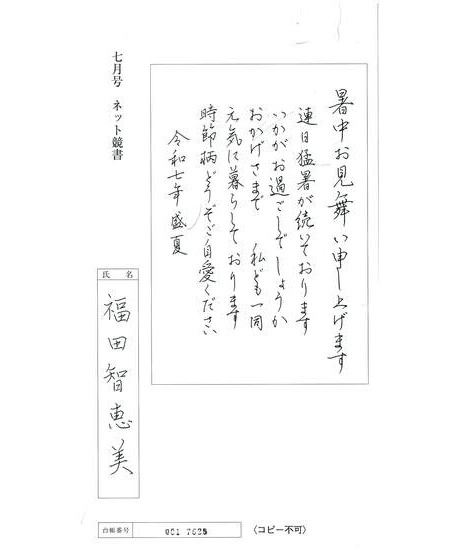 暑中お見舞い申し上げます
連日猛暑が続いております
いかがお過ごしでしょうか
おかげさまで 私ども一同
元気に暮らしております
時節柄どうぞご自愛ください
令和七年盛夏
七月号 ネット競書
氏名
福田智恵美
台帳番号 001 7625
〈コピー不可〉